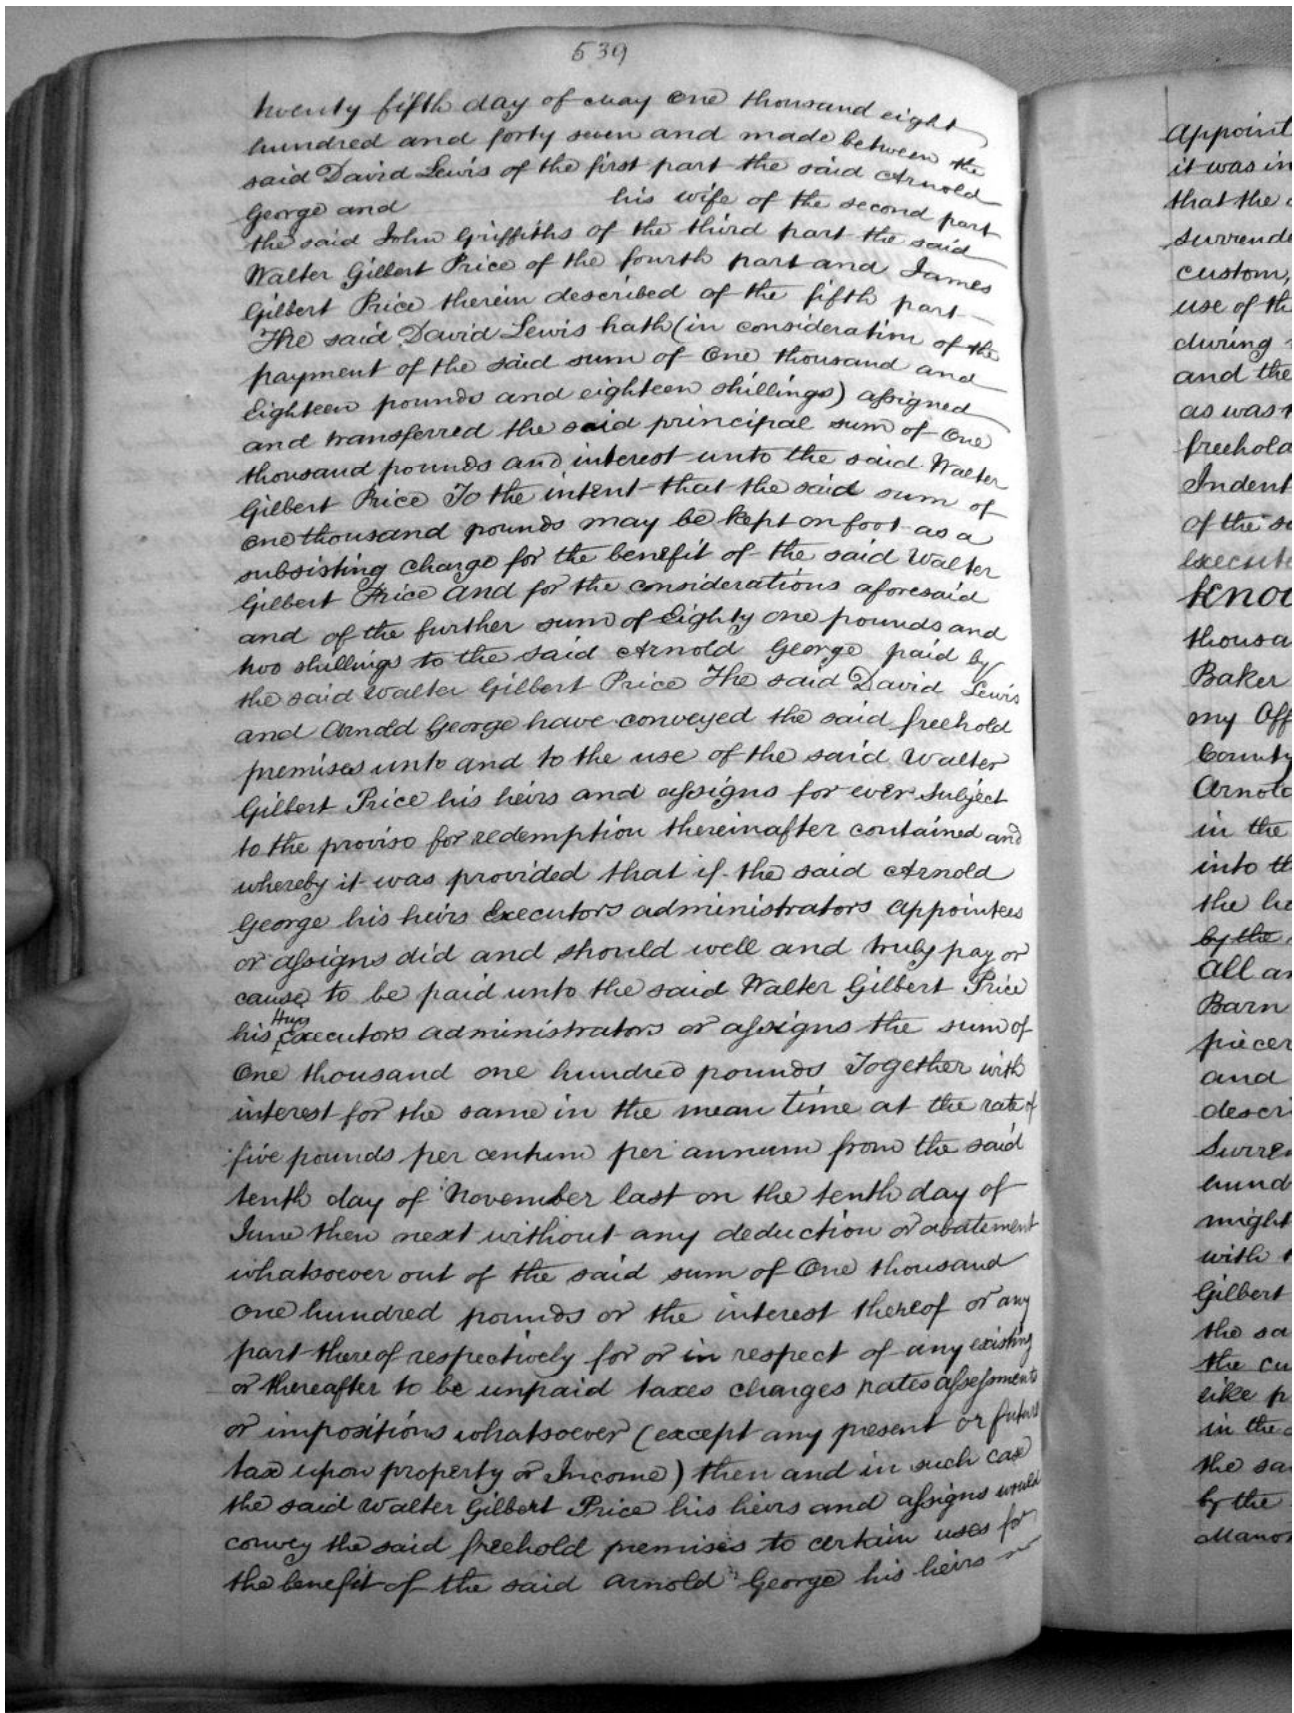 539
twenty fifth day of May One thousand eight
hundred and forty seven and made between the
said David Lewis of the first part the said Arnold
George and his wife of the second part
the said John Griffiths of the third part the said
Walter Gilbert Price of the fourth part and James
Gilbert Price therein described of the fifth part
The said David Lewis hath (in consideration of the
payment of the said sum of One thousand and
Eighteen pounds and eighteen shillings) assigned
and transferred the said principal sum of One
thousand pounds and interest unto the said Walter
Gilbert Price To the intent that the said sum of
One thousand pounds may be kept on foot as a
subsisting charge for the benefit of the said Walter
Gilbert Price And for the considerations aforesaid
and of the further sum of Eighty one pounds and
two shillings to the said Arnold George paid by
the said Walter Gilbert Price The said David Lewis
and Arnold George have conveyed the said freehold
premises unto and to the use of the said Walter
Gilbert Price his heirs and assigns for ever Subject
to the proviso for redemption thereinafter contained and
whereby it was provided that if the said Arnold
George his heirs Executors administrators appointees
or assigns did and should well and truly pay or
cause to be paid unto the said Walter Gilbert Price
his Executors administrators or assigns the sum of
One thousand one hundred pounds Together with
interest for the same in the mean time at the rate of
five pounds per centum per annum from the said
tenth day of November last on the tenth day of
June then next without any deduction or abatement
whatsoever out of the said sum of One thousand
one hundred pounds or the interest thereof or any
part thereof respectively for or in respect of any existing
or thereafter to be unpaid taxes charges rates assessments
or impositions whatsoever (except any present or future
tax upon property or Income) then and in such case
the said Walter Gilbert Price his heirs and assigns would
convey the said freehold premises to certain uses for
the benefit of the said Arnold George his heirs
appoint
it was in
that the
surrende
custom,
use of th
during
and the
as was
freehold
Indent
of the sa
execute
Know
thousa
Baker
my Off
County
Arnold
in the
into th
the he
by the
All an
Barn
pieces
and
descri
Surren
hund
might
with
Gilbert
the sa
the cu
like p
in the
the sai
by the
Manor